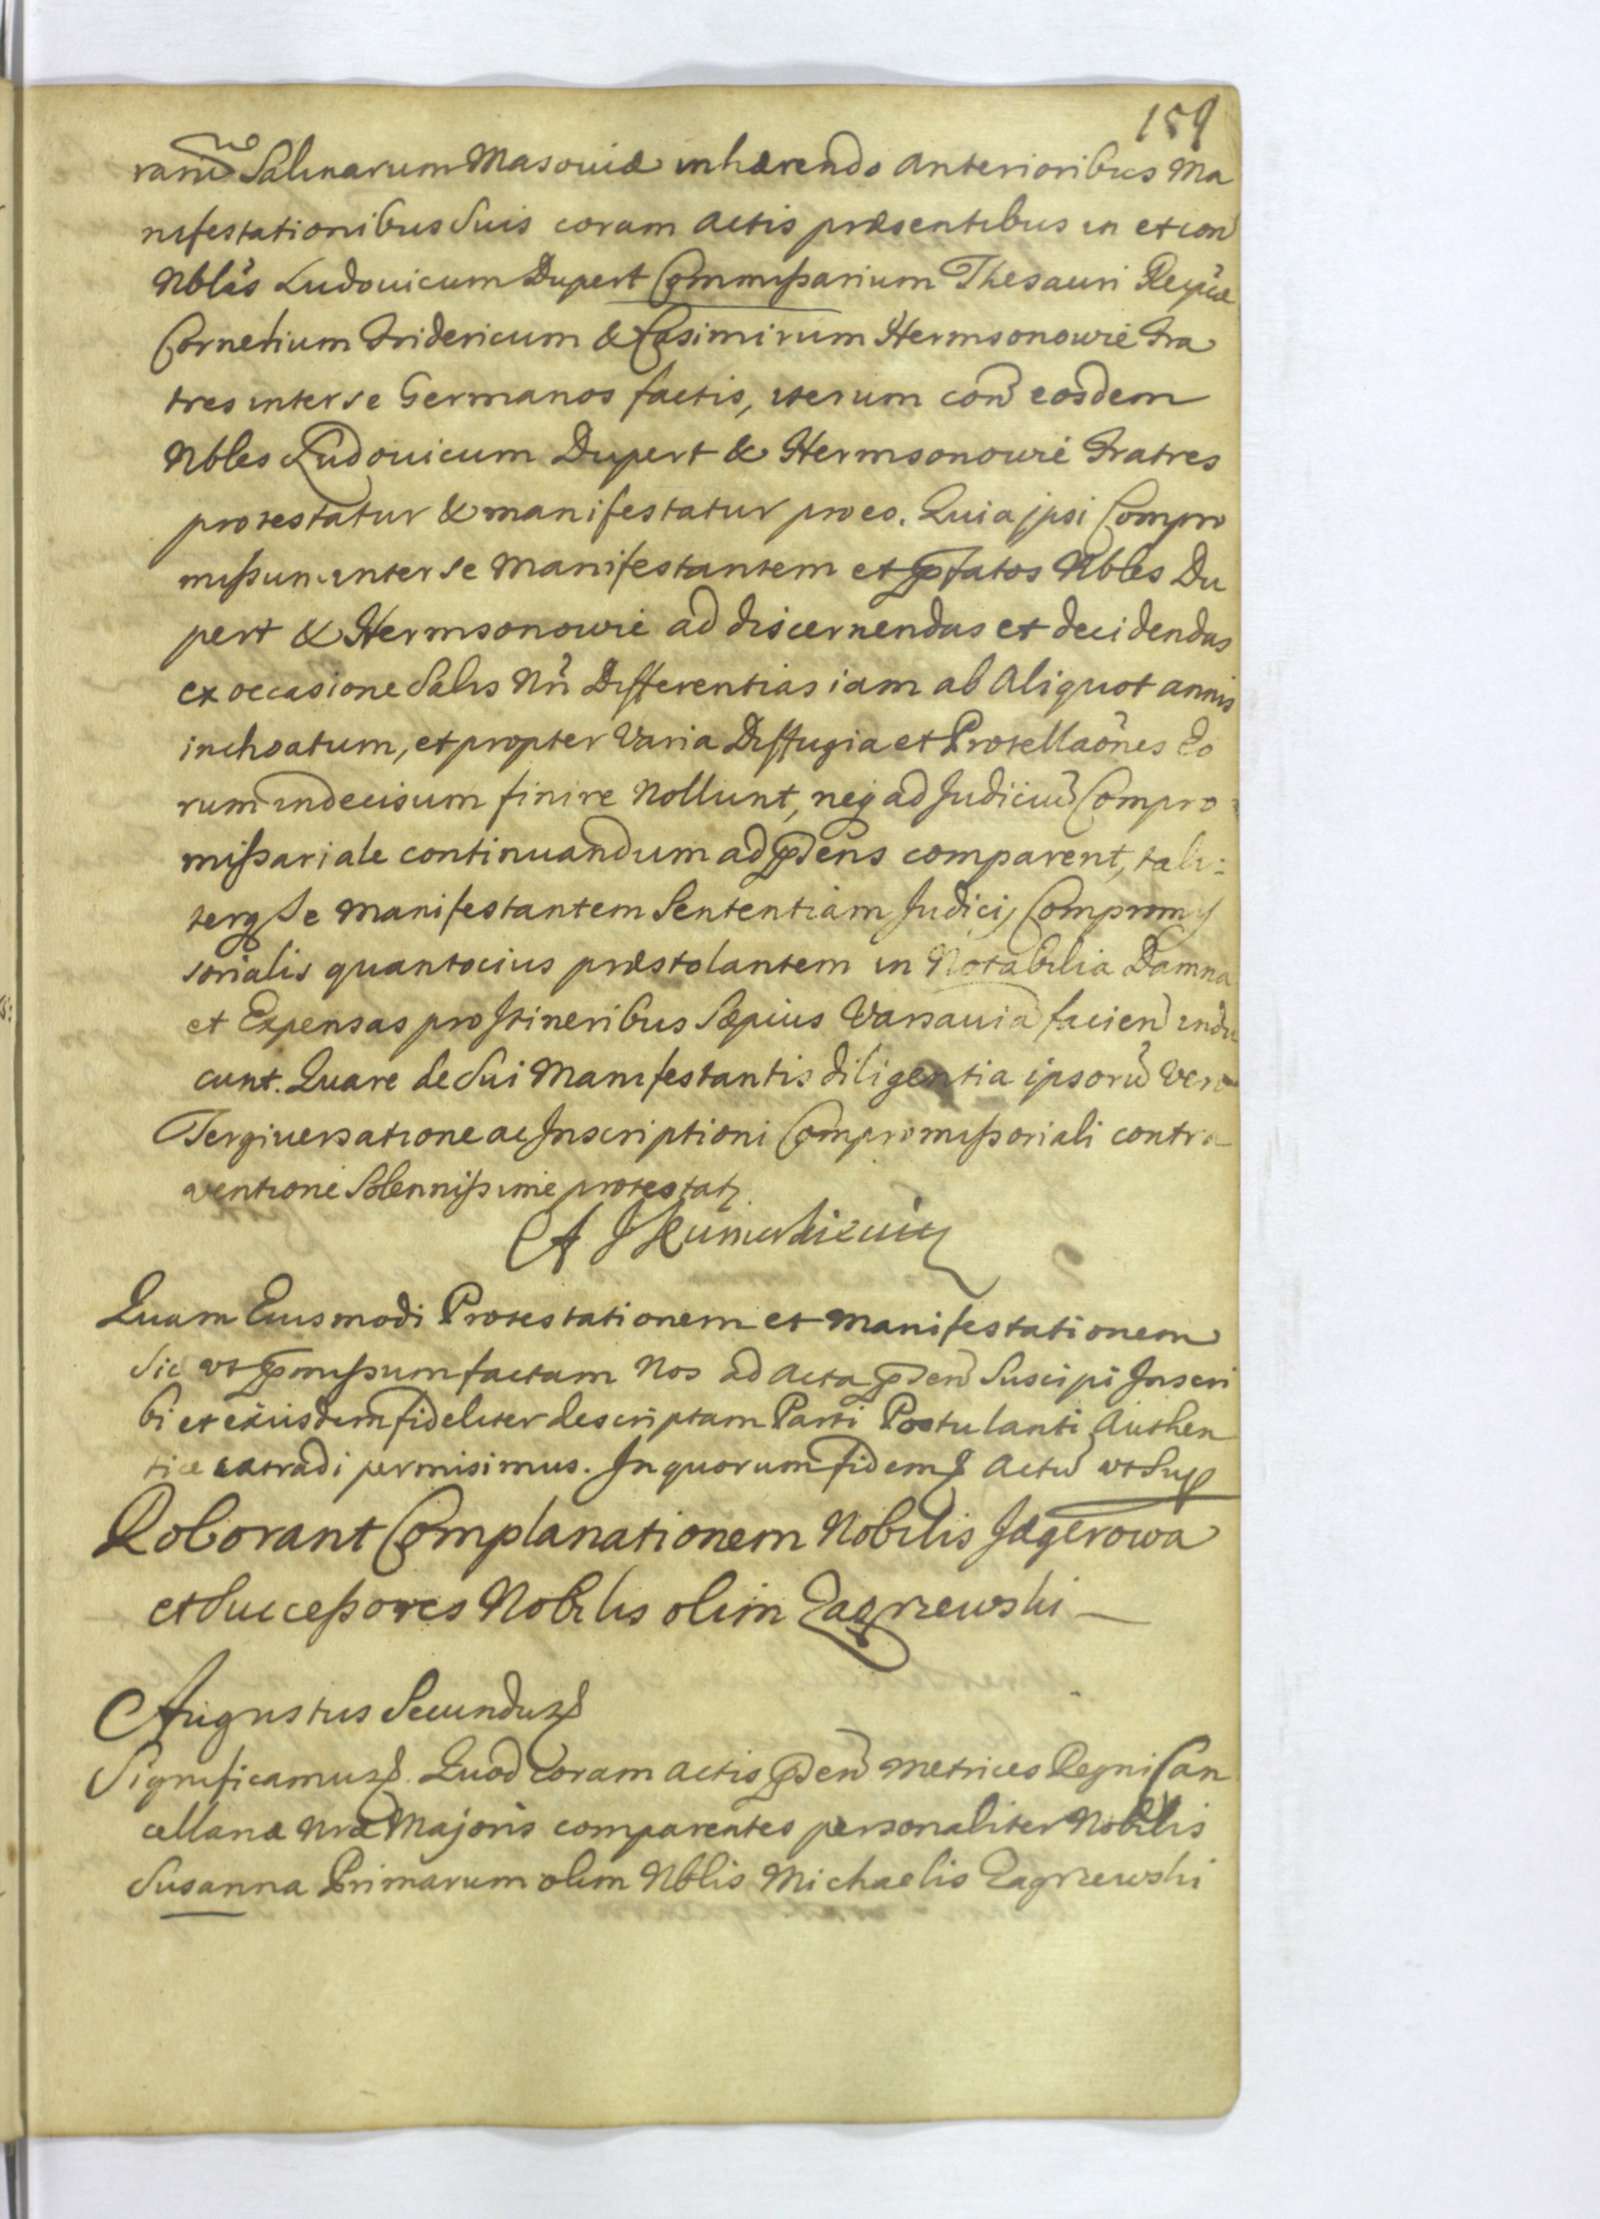 159
rariũ Salinarum Masoviæ inhærendo anterioribus Ma
nifestationibus Suis coram actis præsentibus in et con̄
Nbles Ludovicum Dupert Commissarium Thesauri Reipcæ
Cornelium Fridericum & Casimirum Hermsonowie Fra
tres inter se Germanos factis, iterum con̄ eosdem
Nbles Ludovicum Dupert & Hermsonowie Fratres
protestatur & manifestatur pro eo. Quia ipsi Compro
missum inter se Manifestantem et p̄fatos Nbles Du
pert & Hermsonowie ad discernendas et decidendas
ex occasione Salis Nri Differentias iam ab aliquot annis
inchoatum, et propter varia Diffugia et Protellaões Eo
rum indecisum finire Nollunt, neq ad Judiciũ Compro
missariale continuandum ad p̄dens comparent, tali:
terq Se Manifestantem Sententiam Judicij Compromis
sorialis quantocius præstolantem in Notabilia Damna
et Expensas pro Itineribus Sæpius Varsaviã facien̄ indu
cunt. Quare de Sui Manifestantis diligentia ipsorũ vero
Tergiversatione ac Inscriptioni Compromissoriali contra
ventione Solennissime protestat
Quam Eiusmodi Protestationem et Manifestationem
Sic ut p̄missum factam Nos ad Acta p̄den̄ Suscipi Inscri
bi et exiisdem fideliter descriptam Parti Postulanti Authen
tice extradi permisimus. In quorum fidem Actũ ut Sup
Roborant Complanationem Nobilis Jægerowa
et Successores Nobilis olim Zagrzewski
Augustus Secundus
Significamus. Quod Coram actis p̄den̄ Metrices Regni Can
cellariæ Nræ Majoris comparentes personaliter Nobilis
Susanna Primarum olim Nblis Michaelis Zagrzewski